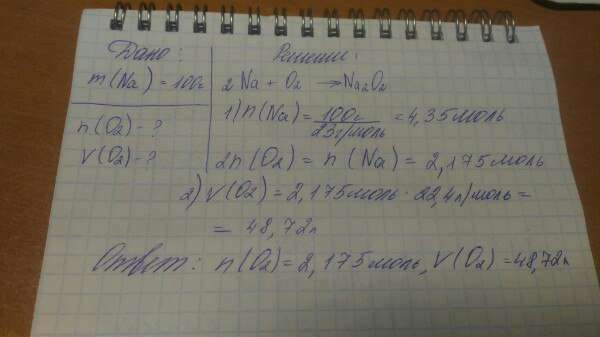 Дано:
m(Na) = 100г
n(O₂) - ?
V(O₂) - ?
Решение:
2Na + O₂ → Na₂O₂
1) n(Na) = 100г / 23г/моль = 4,35моль
2n(O₂) = n(Na) = 2,175моль
2) V(O₂) = 2,175моль · 22,4л/моль =
= 48,72л
Ответ: n(O₂) = 2,175моль, V(O₂) = 48,72л